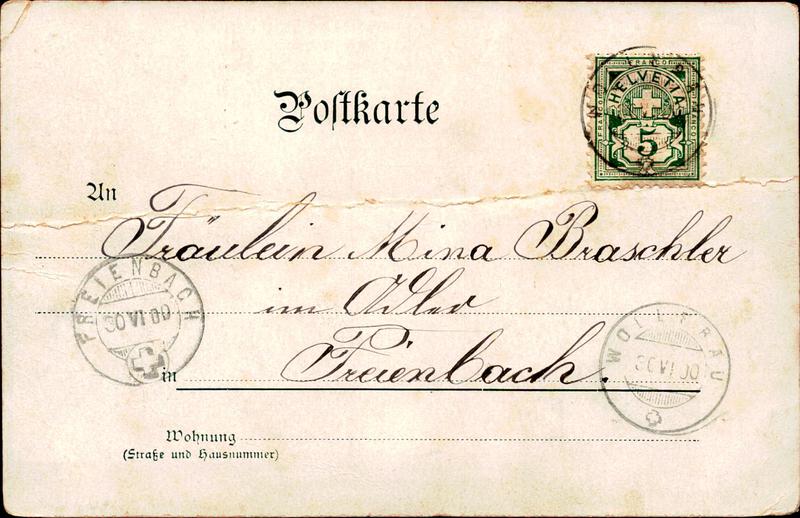 Postkarte
FRANCO
HELVETIA
FRANCO
FRANCO
5
An
Fräulein Mina Braschler
im Adler
FREIENBACH
30 VI 00
WOLLERAU
30 VI 00
in Freienbach.
Wohnung
(Straße und Hausnummer)